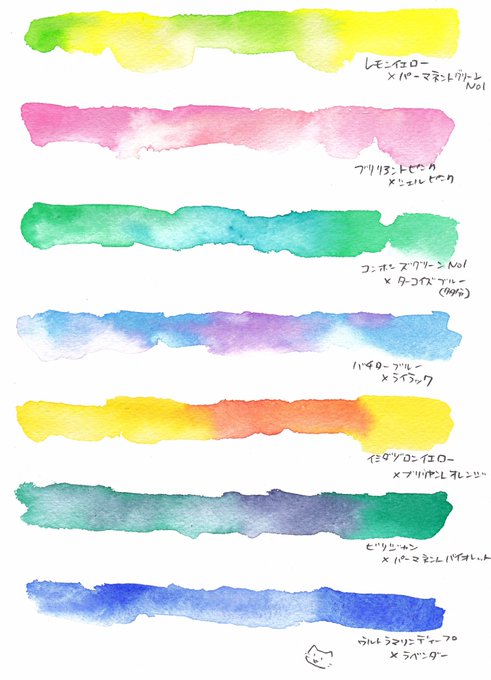 レモンイエロー
×パーマネントグリーン
No1
ブリリアントピンク
×シェルピンク
コンポーズグリーンNo1
×ターコイズブルー
(多分)
バチターブルー
×ライラック
イミダゾロンイエロー
×ブリリヤントオレンジ
ビリジャン
×パーマネントバイオレット
ウルトラマリンディープ
×ラベンダー